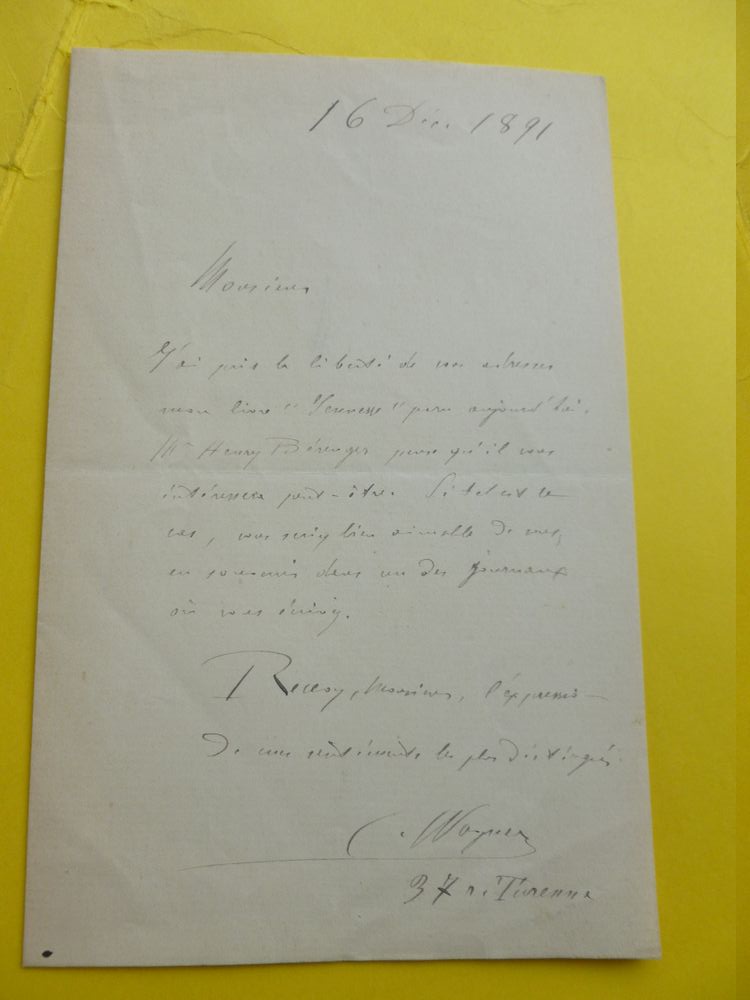 16 Déc. 1891
Monsieur
J'ai pris la liberté de vous adresser
mon livre "Jeunesse" paru aujourd'hui.
Mr Henry Bérenger pense qu'il vous
intéressera peut-être. Si tel est le
cas, vous seriez bien aimable de
en dans un des journaux
où vous écrivez.
Recevez, Monsieur, l'expression
de mes sentiments les plus distingués.
C. Wagner
37 r. Turenne